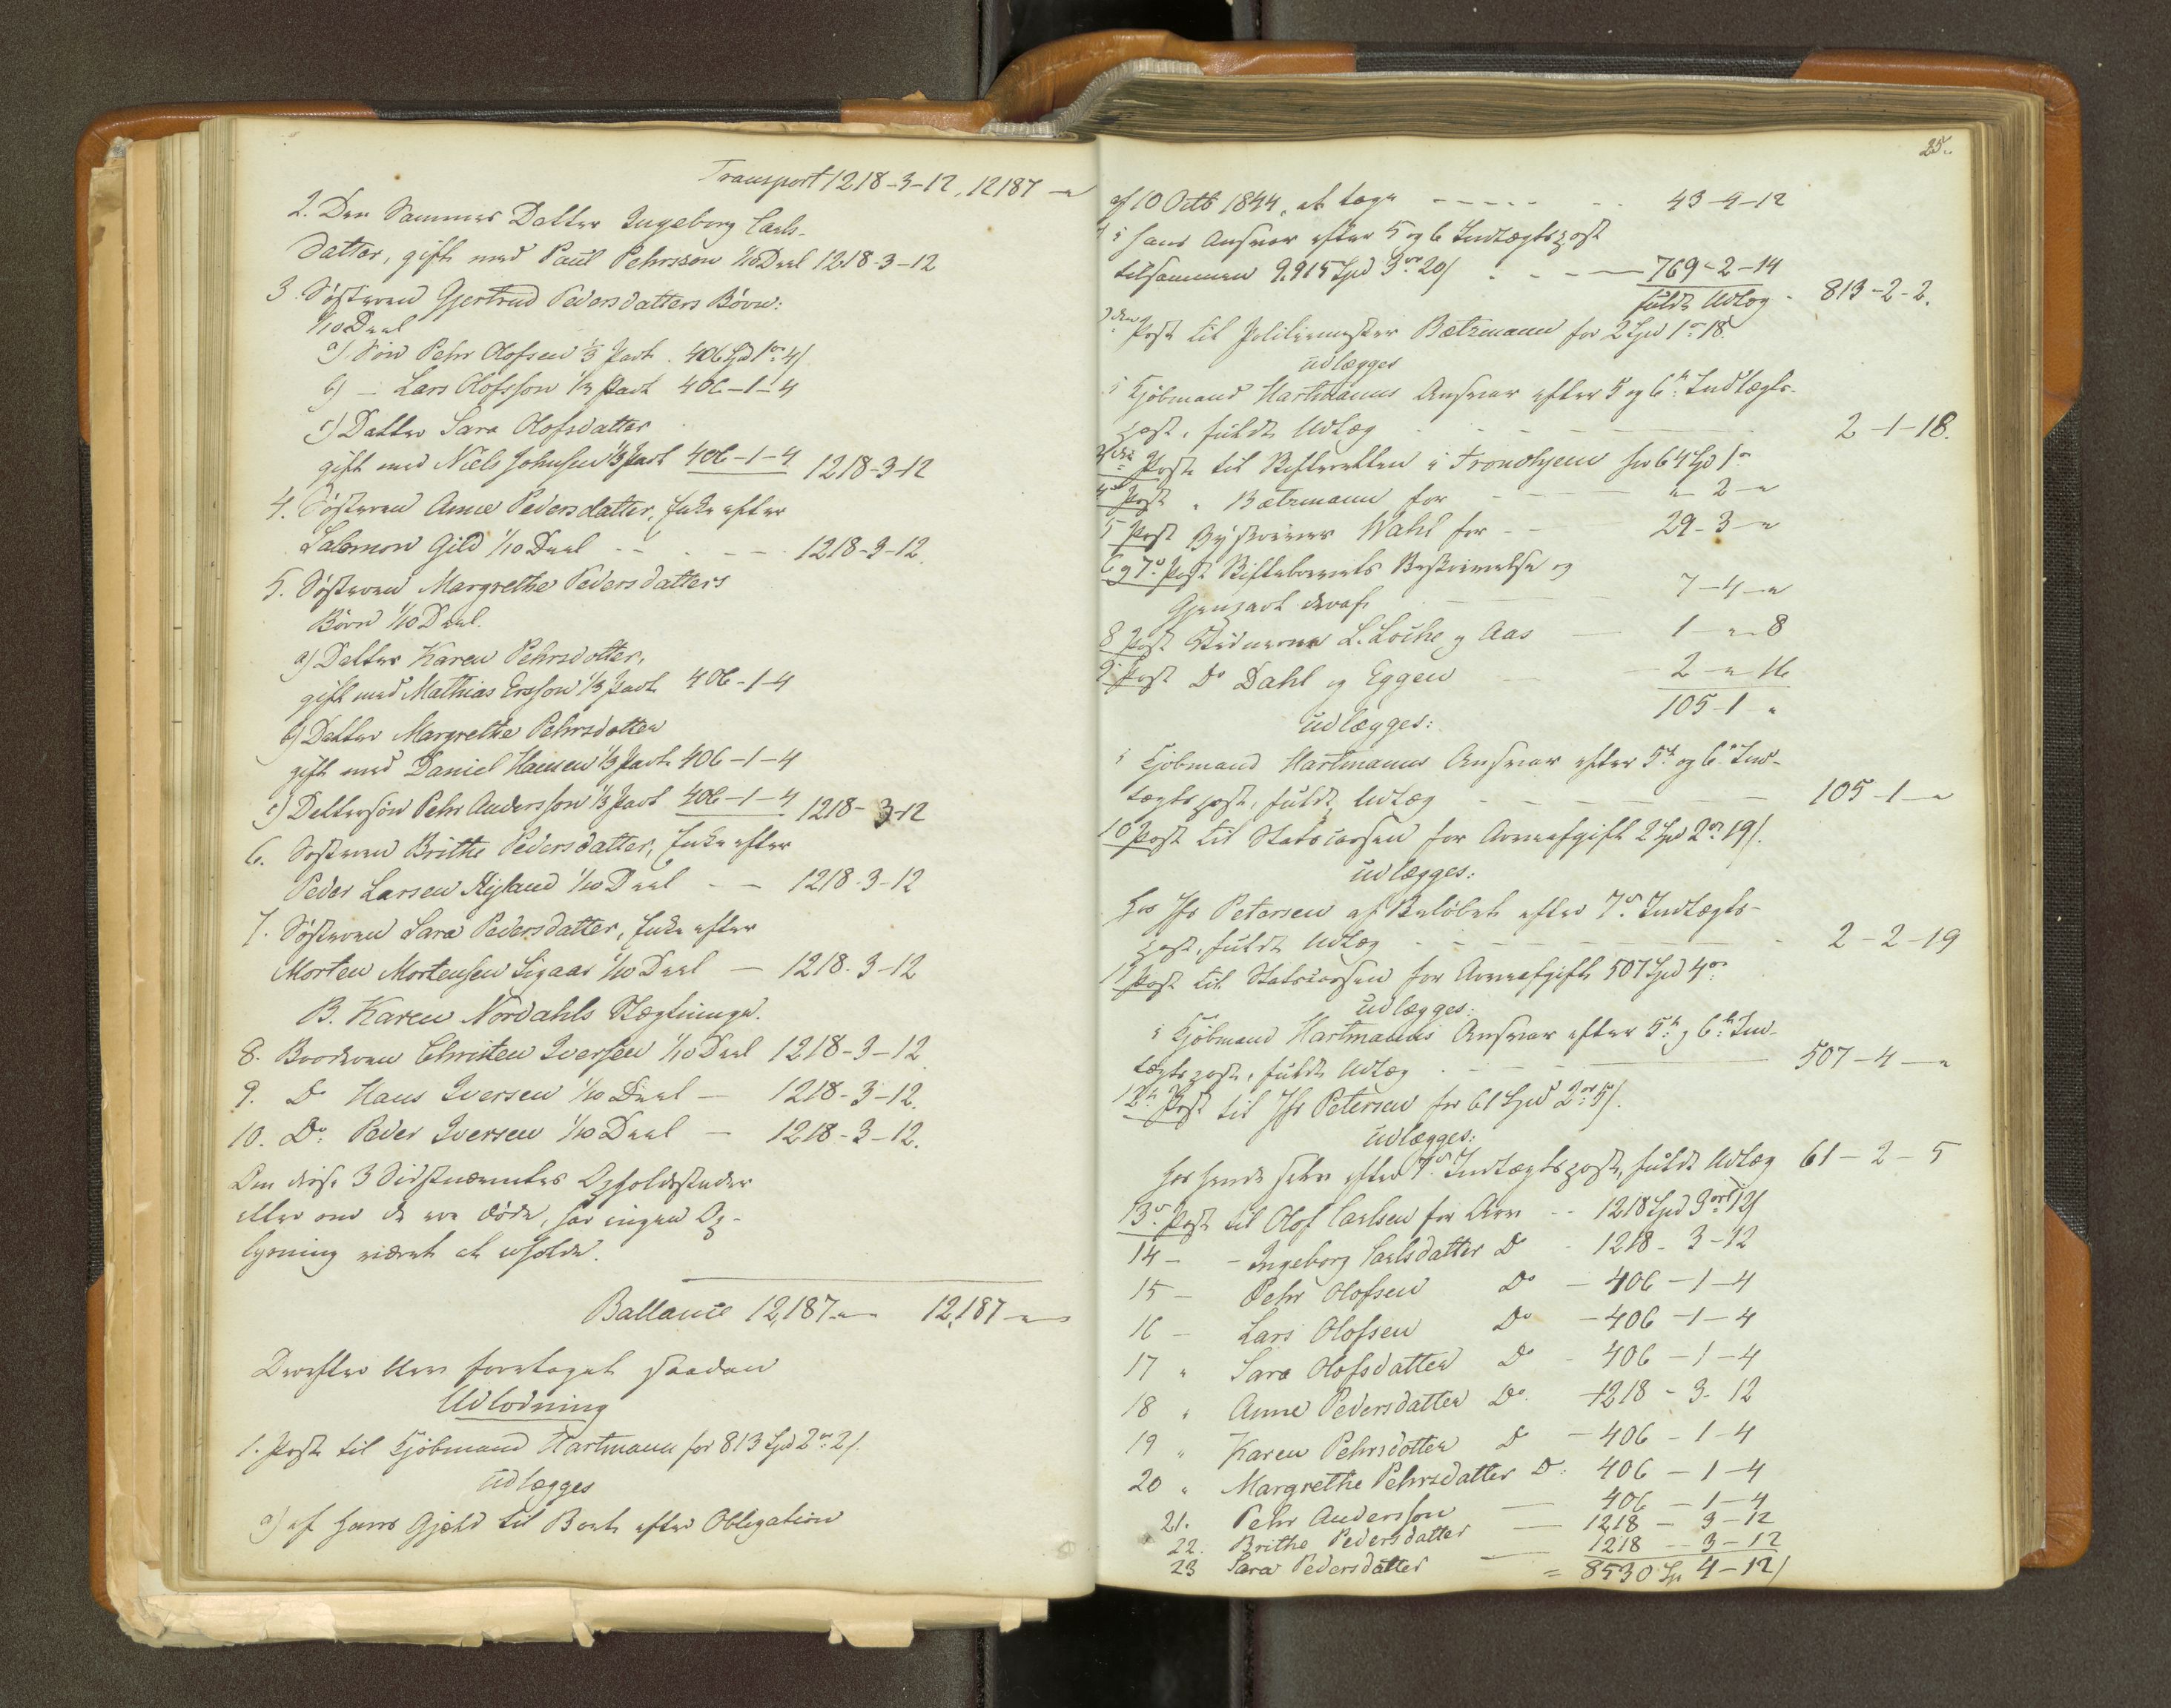 Transport 1218-3-12. 12187 - "
2. Den Sammes Datter Ingeborg Carls-
datter, gift med Paul Pehrsson 1/10 Deel 1218-3-12
3. Søsteren Gjertrud Pedersdatters Børn:
1/10 Deel
a) Søn Pehr Olofsen 1/3 Part. 406 Spd 1 ort 4 s
b) - Lars Olofsson 1/3 Part 406-1-4
c) Datter Sara Olofsdatter
gift med Niels Johnsen 1/3 Part 406-1-4 1218-3-12
4. Søsteren Anne Pedersdatter, Enke efter
Salomon Gild 1/10 Deel - - - - - 1218-3-12.
5. Søsteren Margrethe Pedersdatters
Børn 1/10 Deel.
a) Datter Karen Pehrsdotter,
gift med Mathias Ersson 1/3 Part 406-1-4
b) Datter Margrethe Pehrsdotter
gift med Daniel Hansen 1/3 Part 406-1-4
c) Dattersøn Pehr Andersson 1/3 Part 406-1-4 1218-3-12
6. Søsteren Brithe Pedersdatter, Enke efter
Peder Larsen 1/10 Deel - - 1218-3-12
7. Søsteren Sara Pedersdatter, Enke efter
Morten Mortensen Sigaas 1/10 Deel - 1218-3-12
B. Karen Nordahls Slægtninge.
8. Broderen Christen Iversen 1/10 Deel 1218-3-12.
9. Do Hans Iversen 1/10 Deel - 1218-3-12.
10. Do. Peder Iversen 1/10 Deel - 1218-3-12.
Om disse 3 Sidstnævntes Opholdssteder
eller om de ere døde, har ingen Op-
lysning været at erholde.
Ballance 12,187 - " 12,187 - "
Derefter blev foretaget saadan
Udlodning
1. Post til Kjøbmand Hartmann for 813 Spd 2 ort 2 s.
udlægges
a) af hans Gjæld til Boet efter Obligation
25.
af 10 Octb 1844, at tage - - - - - - - 43-4-12
i hans Ansvar efter 5 og 6 Indtægtspost
tilsammen 9,915 Spd 3 ort 20 s - - - 769-2-14
fuldt Udlæg - 813-2-2.
2den Post til Politiemester Bætzmann for 2 Spd 1 ort 18.
udlægges
i Kjøbmand Hartmanns Ansvar efter 5 og 6te Indtægts-
post, fuldt Udlæg - - - - - 2-1-18.
3die Post til Skifteretten i Trondhjem for 64 Spd 1 ort
4de Post " Bætzmann for - - - " - 2 - "
5 Post Byskriver Wahl for - - 29-3-"
6 og 7de Post Skiftebrevets Beskrivelse og
Gjenpart deraf - - - 7-4-"
8 Post Vidnerne L. Louhe og Aas - 1-"-8
9 Post Do Dahl og Eggen - 2-"-16
105-1 "
udlægges:
i Kjøbmand Hartmanns Ansvar efter 5te og 6te Ind-
tægtspost, fuldt Udlæg - - - - 105-1-"
10 Post til Statscassen for Arveafgift 2 Spd 2 ort 19 s.
udlægges:
hos Jfr Petersen af Beløbet efter 7de Indtægts-
post, fuldt Udlæg - - - - - 2-2-19
11 Post til Statscassen for Arveafgift 507 Spd 4 ort
udlægges:
i Kjøbmand Hartmanns Ansvar efter 5te og 6te Ind-
tægtspost, fuldt Udlæg - - - - 507-4-"
12te Post til Jfr Petersen for 61 Spd 2 ort 5 s.
udlægges:
hos hende selv efter 7de Indtægtspost, fuldt Udlæg 61-2-5
13de Post til Olof Carlsen for Arv - - 1218 Spd 3 ort 12 s
14 - - Ingeborg Carlsdatter Do - 1218-3-12
15 - Pehr Olofsen Do - 406-1-4
16 - Lars Olofsen Do - 406-1-4
17 " Sara Olofsdatter Do - 406-1-4
18 " Anne Pedersdatter Do. - 1218-3-12
19 " Karen Pehrsdotter Do - 406-1-4
20 " Margrethe Pehrsdatter Do: 406-1-4
21. Pehr Andersson - 406-1-4
22. Brithe Pedersdatter - 1218-3-12
23 Sara Pedersdatter - 1218-3-12
= 8530 Sp 4-12 s